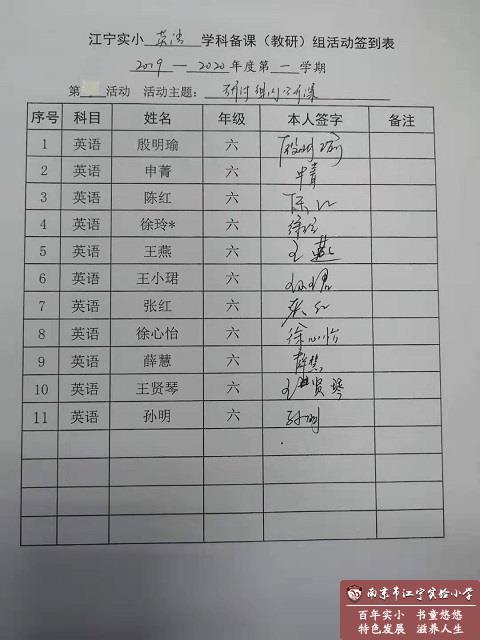 江宁实小 英语 学科备课（教研）组活动签到表
2019 — 2020 年度第 一 学期
第 活动 活动主题： 研讨组内公开课
序号 科目 姓名 年级 本人签字 备注
1 英语 殷明瑜 六 殷明瑜
2 英语 申菁 六 申菁
3 英语 陈红 六 陈红
4 英语 徐玲* 六 徐玲
5 英语 王燕 六 王燕
6 英语 王小珺 六 王小珺
7 英语 张红 六 张红
8 英语 徐心怡 六 徐心怡
9 英语 薛慧 六 薛慧
10 英语 王贤琴 六 王贤琴
11 英语 孙明 六 孙明
南京市江宁实验小学
百年实小 书童悠悠
特色发展 滋养人生